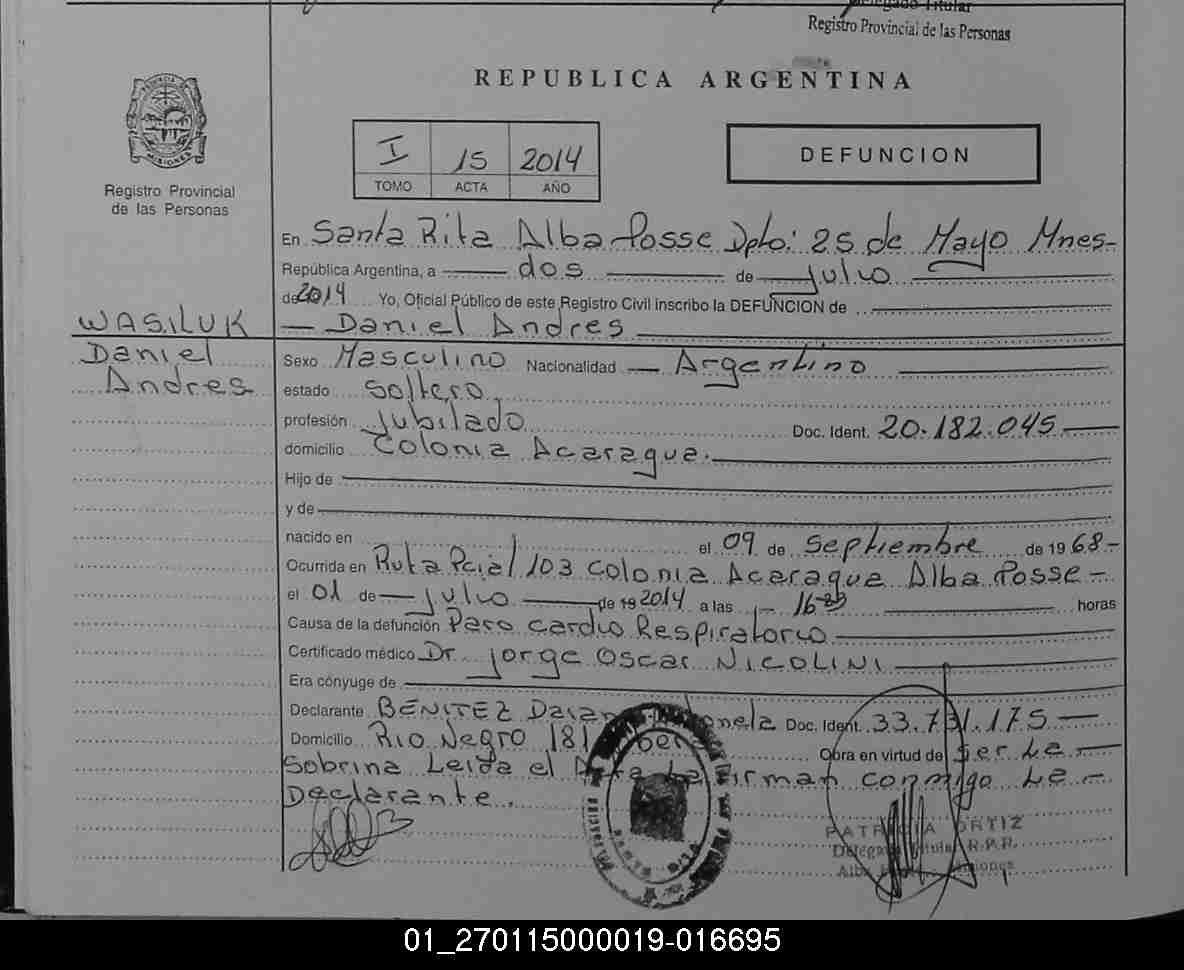 Delegado Titular
Registro Provincial de las Personas
REPUBLICA ARGENTINA
MISIONES
Registro Provincial
de las Personas
I 15 2014
TOMO ACTA AÑO
DEFUNCION
En Santa Rita Alba Posse Dpto: 25 de Mayo Mnes-
República Argentina, a dos de Julio
de 2014 Yo, Oficial Público de este Registro Civil inscribo la DEFUNCION de
WASILUK
Daniel
Andres
— Daniel Andres
Sexo Masculino Nacionalidad — Argentino
estado Soltero.
profesión Jubilado Doc. Ident. 20.182.045
domicilio Colonia Acaragua.
Hijo de
y de
nacido en el 09 de Septiembre de 1968-
Ocurrida en Ruta Pcial 103 Colonia Acaragua Alba Posse-
el 01 de Julio de 19 2014 a las 16 horas
Causa de la defunción Paro Cardio Respiratorio
Certificado médico Dr. Jorge Oscar NICOLINI
Era cónyuge de
Declarante BENITEZ Doc. Ident. 33.731.175
Domicilio Rio Negro 181 Obra en virtud de Ser La
Sobrina Leida el Acta La Firman conmigo La
Declarante.
SANTA RITA
PATRICIA ORTIZ
Delegada Titular R.P.P.
Alba Misiones
01_270115000019-016695